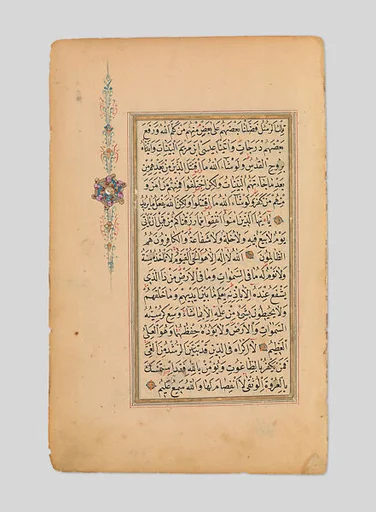 تِلْكَ الرُّسُلُ فَضَّلْنَا بَعْضَهُمْ عَلَى بَعْضٍ مِنْهُمْ مَنْ كَلَّمَ اللَّهُ وَرَفَعَ
بَعْضَهُمْ دَرَجَاتٍ وَآتَيْنَا عِيسَى ابْنَ مَرْيَمَ الْبَيِّنَاتِ وَأَيَّدْنَاهُ
بِرُوحِ الْقُدُسِ وَلَوْ شَاءَ اللَّهُ مَا اقْتَتَلَ الَّذِينَ مِنْ بَعْدِهِمْ مِنْ
بَعْدِ مَا جَاءَتْهُمُ الْبَيِّنَاتُ وَلَكِنِ اخْتَلَفُوا فَمِنْهُمْ مَنْ آمَنَ وَ
مِنْهُمْ مَنْ كَفَرَ وَلَوْ شَاءَ اللَّهُ مَا اقْتَتَلُوا وَلَكِنَّ اللَّهَ يَفْعَلُ مَا يُرِيدُ
يَا أَيُّهَا الَّذِينَ آمَنُوا أَنْفِقُوا مِمَّا رَزَقْنَاكُمْ مِنْ قَبْلِ أَنْ يَأْتِيَ
يَوْمٌ لَا بَيْعٌ فِيهِ وَلَا خُلَّةٌ وَلَا شَفَاعَةٌ وَالْكَافِرُونَ هُمُ
الظَّالِمُونَ اللَّهُ لَا إِلَهَ إِلَّا هُوَ الْحَيُّ الْقَيُّومُ لَا تَأْخُذُهُ سِنَةٌ
وَلَا نَوْمٌ لَهُ مَا فِي السَّمَوَاتِ وَمَا فِي الْأَرْضِ مَنْ ذَا الَّذِي
يَشْفَعُ عِنْدَهُ إِلَّا بِإِذْنِهِ يَعْلَمُ مَا بَيْنَ أَيْدِيهِمْ وَمَا خَلْفَهُمْ
وَلَا يُحِيطُونَ بِشَيْءٍ مِنْ عِلْمِهِ إِلَّا بِمَا شَاءَ وَسِعَ كُرْسِيُّهُ
السَّمَوَاتِ وَالْأَرْضَ وَلَا يَؤُدُهُ حِفْظُهُمَا وَهُوَ الْعَلِيُّ
الْعَظِيمُ لَا إِكْرَاهَ فِي الدِّينِ قَدْ تَبَيَّنَ الرُّشْدُ مِنَ الْغَيِّ
فَمَنْ يَكْفُرْ بِالطَّاغُوتِ وَيُؤْمِنْ بِاللَّهِ فَقَدِ اسْتَمْسَكَ
بِالْعُرْوَةِ الْوُثْقَى لَا انْفِصَامَ لَهَا وَاللَّهُ سَمِيعٌ عَلِيمٌ